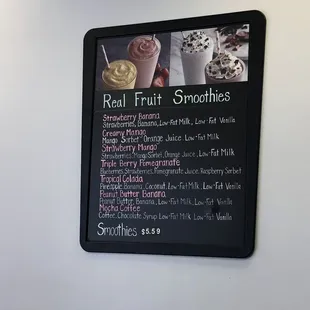 Real Fruit Smoothies
Strawberry Banana
Strawberries, Banana, Low-Fat Milk, Low-Fat Vanilla
Creamy Mango
Mango Sorbet, Orange Juice, Low-Fat Milk
Strawberry Mango
Strawberries, Mango Sorbet, Orange Juice, Low-Fat Milk
Triple Berry Pomegranate
Blueberries, Strawberries, Pomegranate Juice, Raspberry Sorbet
Tropical Colada
Pineapple, Banana, Coconut, Low-Fat Milk, Low-Fat Vanilla
Peanut Butter Banana
Peanut Butter, Banana, Low-Fat Milk, Low-Fat Vanilla
Mocha Coffee
Coffee, Chocolate Syrup, Low-Fat Milk, Low-Fat Vanilla
Smoothies $5.59